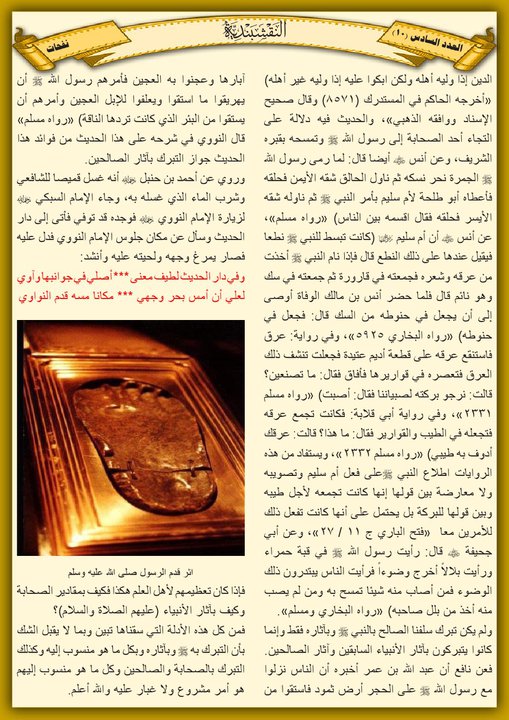 العدد السادس (١٠)
النقشبندية
نفحات
الدين إذا وليه أهله ولكن ابكوا عليه إذا وليه غير أهله)
«أخرجه الحاكم في المستدرك (٨٥٧١) وقال صحيح
الإسناد ووافقه الذهبي»، والحديث فيه دلالة على
التجاء أحد الصحابة إلى رسول الله ﷺ وتمسحه بقبره
الشريف، وعن أنس ؓ أيضا قال: لما رمى رسول الله
ﷺ الجمرة نحر نسكه ثم ناول الحالق شقه الأيمن فحلقه
فأعطاه أبو طلحة لأم سليم بأمر النبي ﷺ ثم ناوله شقه
الأيسر فحلقه فقال اقسمه بين الناس) «رواه مسلم»،
عن أنس ؓ أن أم سليم ؓ (كانت تبسط للنبي ﷺ نطعا
فيقيل عندها على ذلك النطع قال فإذا نام النبي ﷺ أخذت
من عرقه وشعره فجمعته في قارورة ثم جمعته في سك
وهو نائم قال فلما حضر أنس بن مالك الوفاة أوصى
إلى أن يجعل في حنوطه من السك قال: فجعل في
حنوطه) «رواه البخاري ٥٩٢٥»، وفي رواية: عرق
فاستنقع عرقه على قطعة أديم عتيدة فجعلت تنشف ذلك
العرق فتعصره في قواريرها فأفاق فقال: ما تصنعين؟
قالت: نرجو بركته لصبياننا فقال: أصبت) «رواه مسلم
٢٣٣١»، وفي رواية أبي قلابة: فكانت تجمع عرقه
فتجعله في الطيب والقوارير فقال: ما هذا؟ قالت: عرقك
أدوف به طيبي) «رواه مسلم ٢٣٣٢»، ويستفاد من هذه
الروايات اطلاع النبي ﷺ على فعل أم سليم وتصويبه
ولا معارضة بين قولها إنها كانت تجمعه لأجل طيبه
وبين قولها للبركة بل يحتمل على أنها كانت تفعل ذلك
للأمرين معا «فتح الباري ج ١١ / ٢٧»، وعن أبي
جحيفة ؓ قال: رأيت رسول الله ﷺ في قبة حمراء
ورأيت بلالاً أخرج وضوءاً فرأيت الناس يبتدرون ذلك
الوضوء فمن أصاب منه شيئا تمسح به ومن لم يصب
منه أخذ من بلل صاحبه) «رواه البخاري ومسلم».
ولم يكن تبرك سلفنا الصالح بالنبي ﷺ وبآثاره فقط وإنما
كانوا يتبركون بآثار الأنبياء السابقين وآثار الصالحين.
فعن نافع أن عبد الله بن عمر أخبره أن الناس نزلوا
مع رسول الله ﷺ على الحجر أرض ثمود فاستقوا من
آبارها وعجنوا به العجين فأمرهم رسول الله ﷺ أن
يهريقوا ما استقوا ويعلفوا للإبل العجين وأمرهم أن
يستقوا من البئر الذي كانت تردها الناقة) «رواه مسلم»
قال النووي في شرحه على هذا الحديث من فوائد هذا
الحديث جواز التبرك بآثار الصالحين.
وروي عن أحمد بن حنبل ؓ أنه غسل قميصا للشافعي
وشرب الماء الذي غسله به، وجاء الإمام السبكي ؓ
لزيارة الإمام النووي ؓ فوجده قد توفي فأتى إلى دار
الحديث وسأل عن مكان جلوس الإمام النووي فدل عليه
فصار يمرغ وجهه ولحيته عليه وأنشد:
وفي دار الحديث لطيف معنى *** أصلي في جوانبها وآوي
لعلي أن أمس بحر وجهي *** مكانا مسه قدم النواوي
اثر قدم الرسول صلى الله عليه وسلم
فإذا كان تعظيمهم لأهل العلم هكذا فكيف بمقادير الصحابة
وكيف بآثار الأنبياء (عليهم الصلاة والسلام)؟
فمن كل هذه الأدلة التي سقناها تبين وبما لا يقبل الشك
بأن التبرك به ﷺ وبآثاره وبكل ما هو منسوب إليه وكذلك
التبرك بالصحابة والصالحين وكل ما هو منسوب إليهم
هو أمر مشروع ولا غبار عليه والله أعلم.